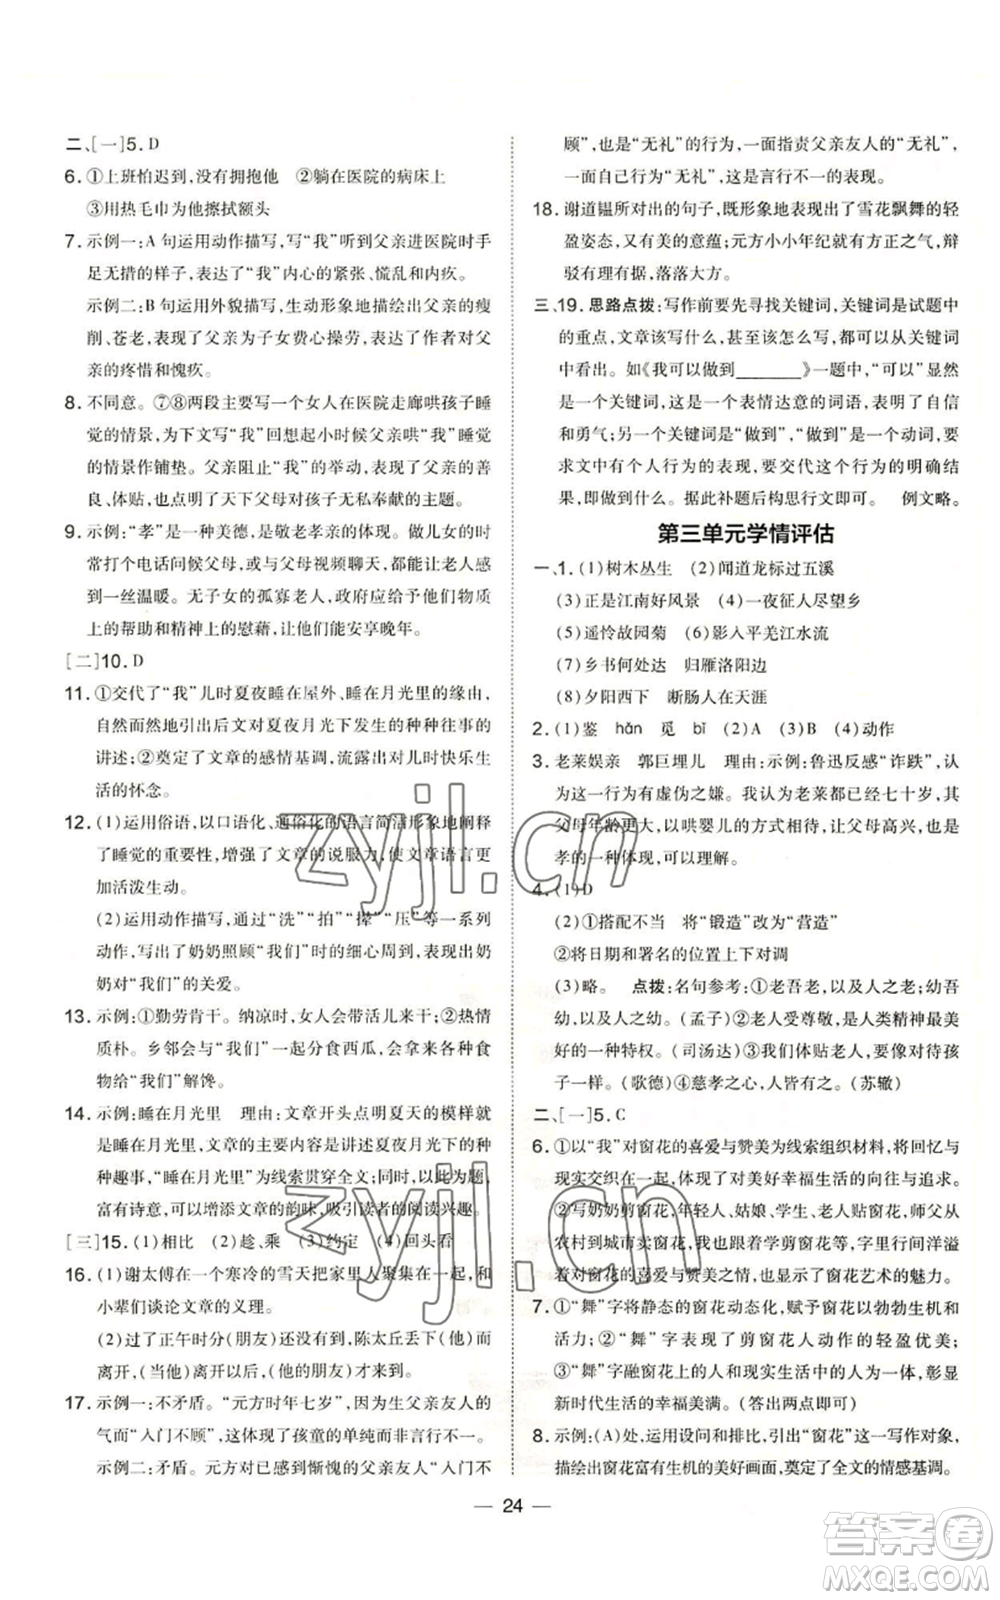 二、[一]5. D
6. ①上班怕迟到,没有拥抱他 ②躺在医院的病床上
③用热毛巾为他擦拭额头
7. 示例一:A 句运用动作描写,写“我”听到父亲进医院时手
足无措的样子,表达了“我”内心的紧张、慌乱和内疚。
示例二:B 句运用外貌描写,生动形象地描绘出父亲的瘦
削、苍老,体现了父亲为子女费心操劳,表达了作者对父
亲的疼惜和愧疚。
8. 不同意。⑦⑧两段主要写一个女人在医院走廊哄孩子睡
觉的情景,为下文写“我”回想起小时候父亲哄“我”睡觉
的情景作铺垫。父亲阻止“我”的举动,表现了父亲的善
良、体贴,也点明了天下父母对孩子无私奉献的主题。
9. 示例:“孝”是一种美德,是敬老孝亲的体现。做儿女的时
常打个电话问候父母,与父母视频聊天,都能让老人感受
到一丝温暖。无子女的孤寡老人,政府应给予他们物质
上的帮助和精神上的慰藉,让他们能安享晚年。
[二]10. D
11. ①交代了“我”儿时夏夜睡在屋外、睡在月光里的缘由,
自然而然地引出后文对夏夜月光下发生的种种往事的
讲述;②奠定了文章的感情基调,流露出对儿时快乐生
活的怀念。
12. (1)运用俗语,以口语化、通俗化的语言简洁形象地阐释
了睡觉的重要性,增强了文章的说服力,使文章语言更
加活泼生动。
(2)运用动作描写,通过“洗”“拍”“撵”“压”等一系列
动作,写出了奶奶照顾“我们”时的细心周到,表现出奶
奶对“我们”的关爱。
13. 示例:①勤劳肯干。纳凉时,人们会带活儿来干;②热情
质朴。乡邻会与“我们”一起分食西瓜,会拿来各种食
物给“我们”解馋。
14. 示例:睡在月光里 理由:文章开头点明夏天的模样就
是睡在月光里,文章的主要内容是讲述睡在月光里的种
种趣事,“睡在月光里”为线索贯穿全文;同时,本题目
富有诗意,可以增添文章的文学色彩,激发读者的阅读兴趣。
[三]15. (1)相比 (2)趁、乘 (3)约定 (4)回头看
16. (1)谢太傅在一个寒冷的雪天把家里人聚集在一起,和
小辈们谈论文章的义理。
(2)过了正午时分(朋友)还没有到,陈太丘丢下(他)而
离开,(他)离开后(他的朋友)才来到。
17. 示例一:不矛盾。“元方时年七岁”,因为生父亲友人的
气而“入门不顾”,这体现了孩童的单纯而并非言行不一。
示例二:矛盾。元方对已感到惭愧的父亲友人“入门不
顾”,也是“无礼”的行为,一面指责父亲友人“无礼”,
一面自己行为“无礼”,这是言行不一的表现。
18. 谢道韫所对出的句子,既形象地表现出了雪花飘舞的轻
盈姿态,又有深的美的意蕴;元方小小年纪就有方正之气,辩
驳有理有据,落落大方。
三、19. 思路点拨:写作前要先寻找关键词,关键词是试题中
的重点,文章该写什么,重点是什么,该怎么写,都可以从关键词
中看出。如《我可以做到________》一题中,“可以”显然
是一个关键词,这是一个表情达意的词语,表明了自信
和勇气;另一个关键词是“做到”,“做到”是一个动词,要
求文中有个人行为的表现,要交代这个行为的明确结
果,即做到什么。据此补题后构思行文即可。 例文略。
第三单元学情评估
一、1. (1)树木丛生 (2)闻道龙标过五溪
(3)正是江南好风景 (4)一夜征人尽望乡
(5)遥怜故园菊 (6)影入平羌江水流
(7)乡书何处达 归雁洛阳边
(8)夕阳西下 断肠人在天涯
2. (1)鉴 hǎn 觅 bǐ (2)A (3)B (4)动作
3. 老莱娱亲 郭巨埋儿 理由:示例:鲁迅反感“诈跌”,
认为这种行为有虚伪之嫌。我认为老莱都已经七十岁,其
父母年龄更大,以哄婴儿的方式相待,让父母高兴,也是
孝的一种体现,可以理解。
4. (1)D
(2)①搭配不当 将“锻造”改为“营造”
②将日期和署名的位置上下对调
(3)略。 点拨:名句参考:①老吾老,以及人之老;幼吾
幼,以及人之幼。(孟子)②老人受尊敬,是人类精神最美
好的一种特权。(司汤达)③我们体贴老人,要像对待孩
子一样。(歌德)④慈孝之心,人皆有之。(苏辙)
二、[一]5. C
6. ①以“我”对窗花的喜爱与赞美为线索组织材料,将回忆与
现实交织在一起,感情真挚,表达了对美好幸福生活的向往与追求。
②写奶奶剪窗花,年轻人、姑娘、学生、老人贴窗花,从
农村到城市卖窗花,大家一起学剪窗花等,字里行间洋溢
着对窗花的喜爱与赞美之情,写出了窗花艺术的魅力。
7. ①“舞”字将静态的窗花动态化,赋予窗花以勃勃生机和
活力;②“舞”字表现了剪窗花人动作的轻盈优美;
③“舞”字融剪窗花之人与窗花为一体,象征着
新时代生活的幸福美满。(答出两点即可)
8. 示例:(A)处,运用设问和排比,引出“窗花”这一写作对象,
描绘出窗花富有生机的美好画面,奠定了全文的情感基调。
24
zyjl.cn
zyjl.cn
答案圈
MXQE.COM